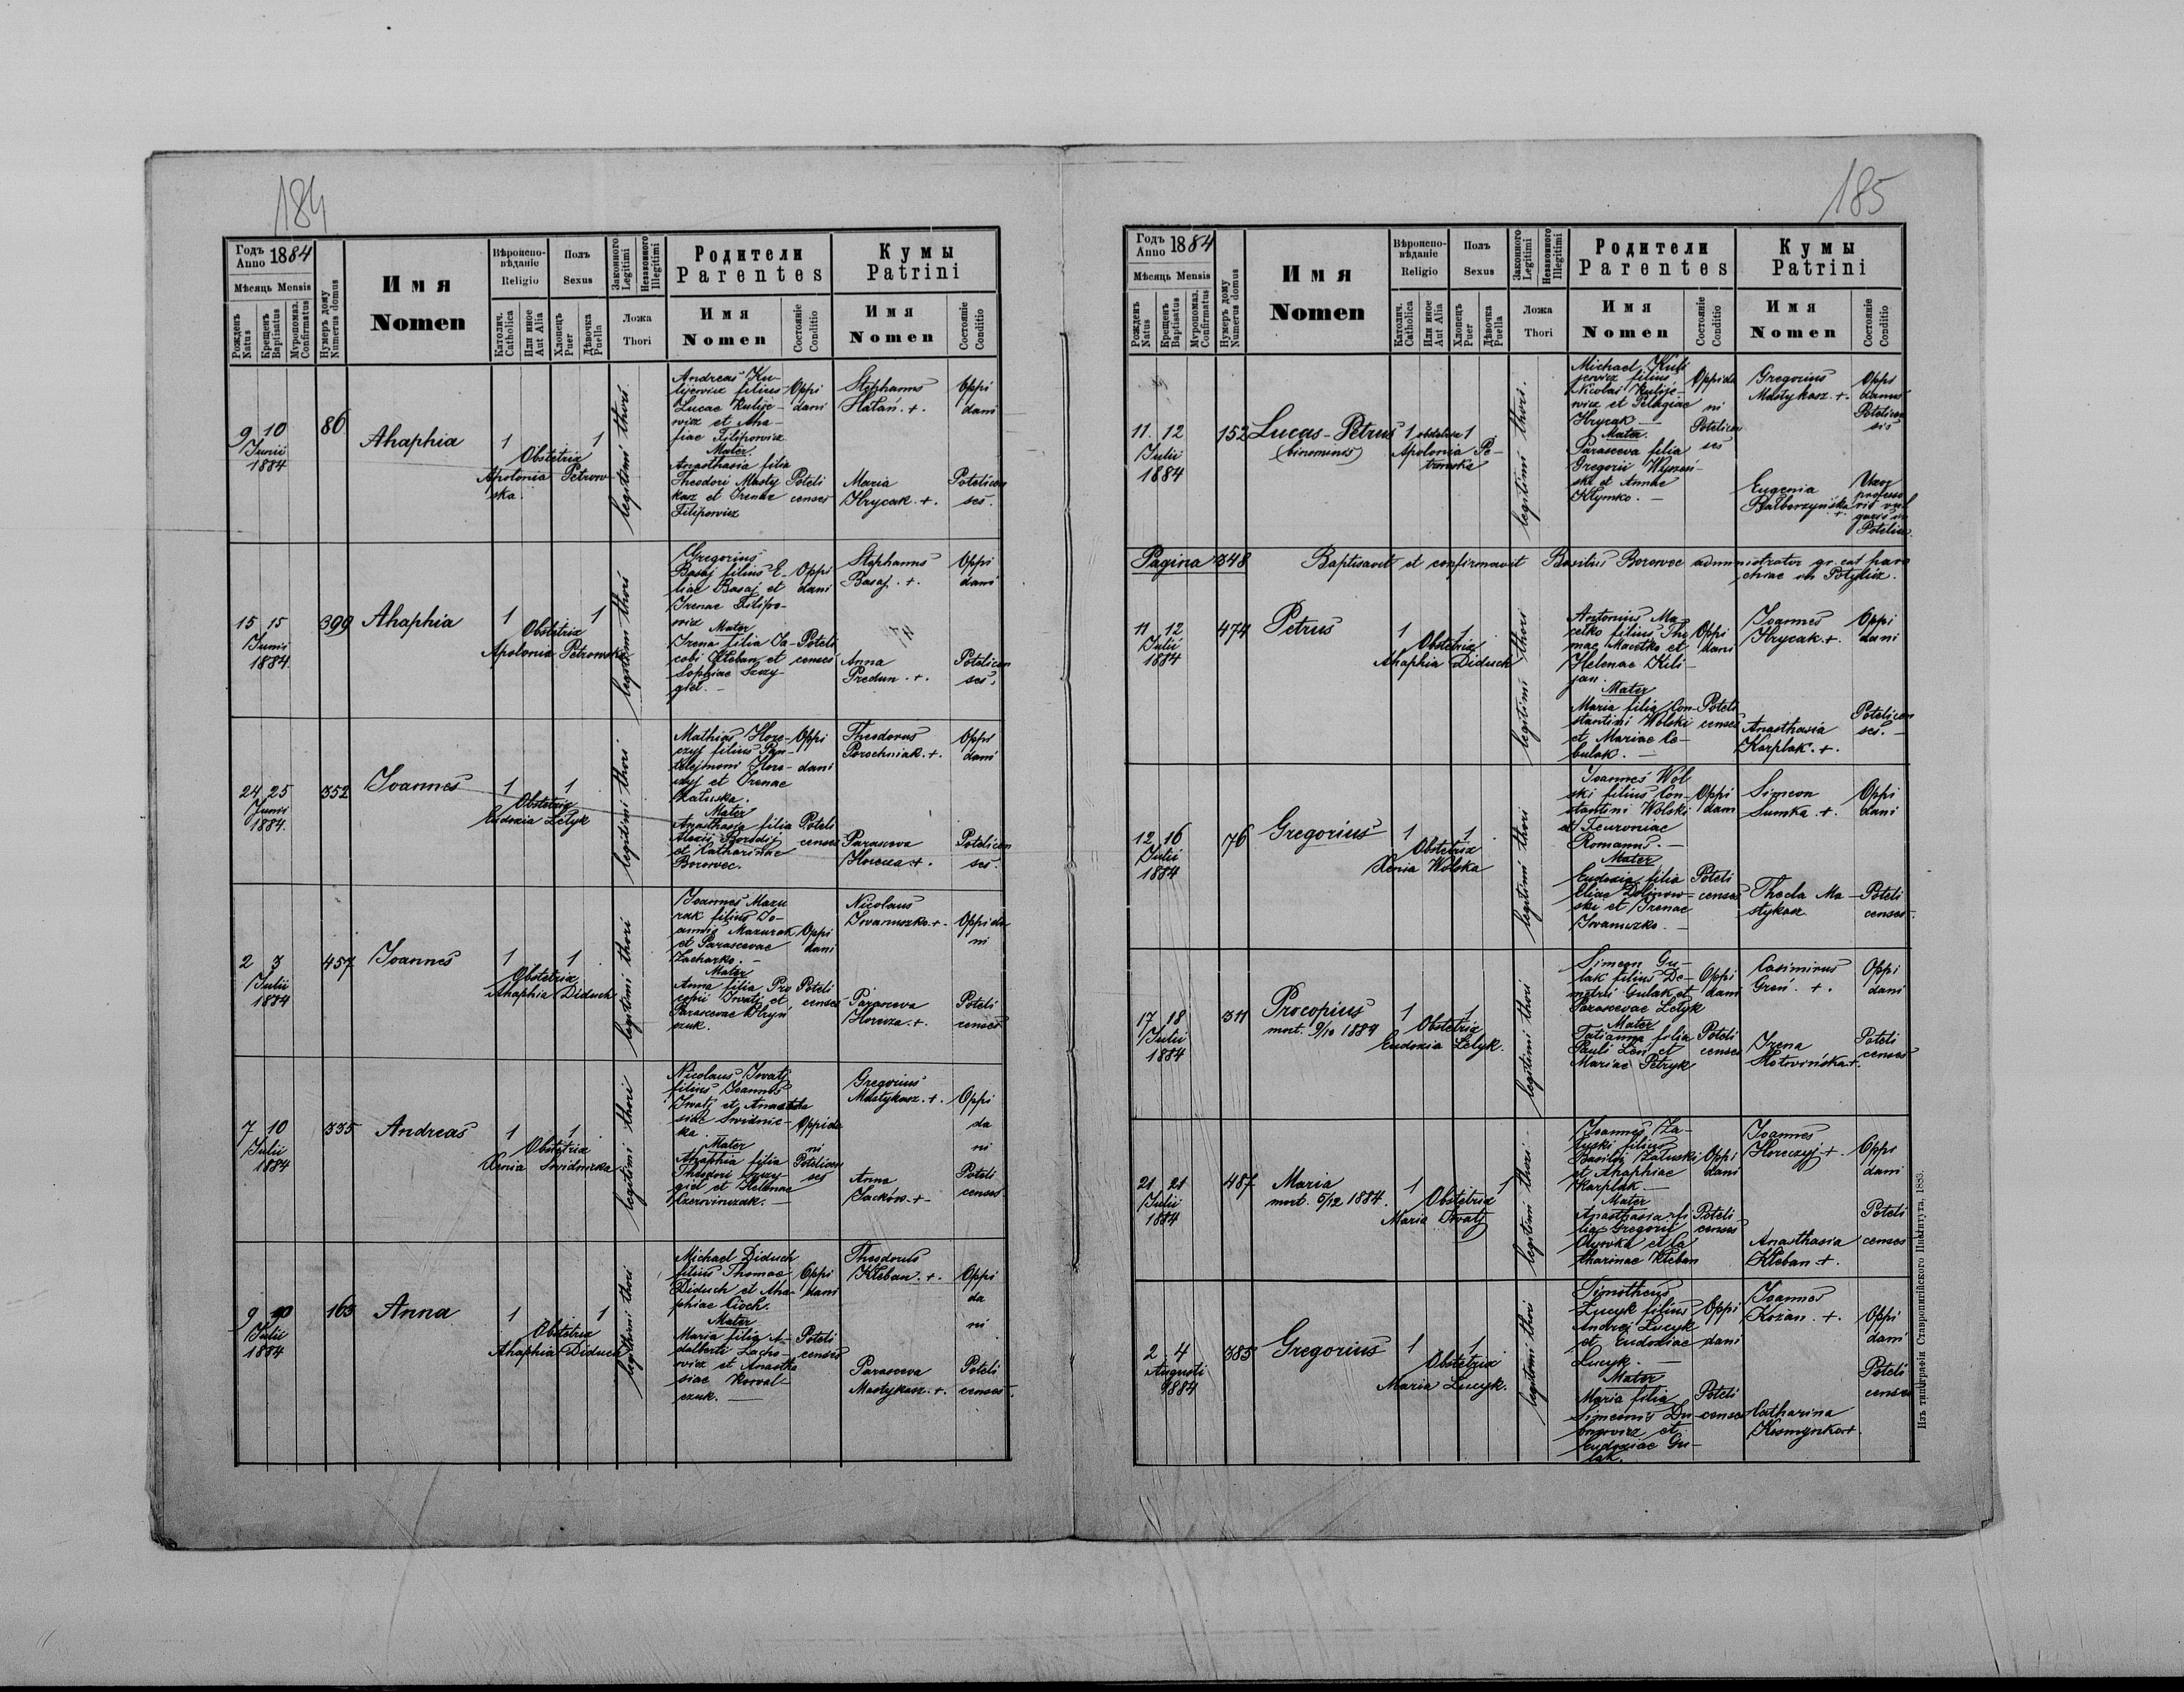 184
Годъ 1884
Anno
Мѣсяць Mensis
Рожденъ Natus
Крещенъ Baptisatus
Мѵропомаз. Confirmatus
Нумеръ дому
Numerus domus
Имя
Nomen
Вѣроиспо-
вѣданіе
Religio
Католич. Catholica
Или иное Aut Alia
Полъ
Sexus
Хлопецъ Puer
Дѣвочка Puella
Законного Legitimi
Незаконного Illegitimi
Ложа
Thori
Родители
Parentes
Имя
Nomen
Состояніе
Conditio
Кумы
Patrini
Имя
Nomen
Состояніе
Conditio
9 10
Junii
1884
86
Ahaphia
1 1
Obstetrix
Apolonia Petrow-
ska.
legitimi thori.
Andreas Ku-
lijewicz filius
Lucae Kulije-
wicz et Aha-
fiae Filipowicz
Mater.
Anasthasia filia
Theodori Masty
kasz et Irenae
Filipowicz
Oppi
dani
Poteli
censes
Stephanus
Hatań. +.
Maria
Hrycak. +.
Oppi
dani
Potelicen
ses.
15 15
Junii
1884.
399
Ahaphia
1 1
Obstetrix
Apolonia Petrowska
legitimi thori
Gregorius
Basaj filius E-
liae Basaj et
Irenae Filipo-
wicz
Mater
Irena filia Ja-
cobi Kleban et
Sophiae Szczy-
giel. -
Oppi
dani
Poteli
censes
Stephanus
Basaj. +.
Anna
Predun. +.
Oppi
dani
Potelicen
ses.
24 25
Junii
1884.
352
Joannes
1 1
Obstetrix
Eudoxia Letyk
legitimi thori
Mathias Hore-
czyj filius Pan-
telejmoni Hore-
czyj et Irenae
Załuska.
Mater
Anasthasia filia
Alexii Borodij
et Catharinae
Borowec.
Oppi
dani
Poteli
censes
Theodorus
Porochniak. +.
Parasceva
Horecza +.
Oppi
dani
Potelicen
ses.
2 3
Julii
1884
457
Joannes
1 1
Obstetrix
Ahaphia Diduch
legitimi thori
Joannes Mazu
rak filius Jo-
annis Mazurak
et Parascevae
Zacharko. -
Mater
Anna filia Pro
copii Iwatj et
Parascevae Hryń
czuk.
Oppi
dani
Poteli
censes
Nicolaus
Iwanuszko. +.
Parasceva
Horecza. +.
Oppida
ni
Poteli
censes
7 10
Julii
1884
335
Andreas
1 1
Obstetrix
Xenia Swidnicka
legitimi thori
Nicolaus Iwatj
filius Joannes
Iwatj et Anastha
siae Swidnic-
ka.
Mater
Ahaphia filia
Theodori Szczy
giel et Helenae
Czerwinczuk. -
Oppida
ni
Potelicen
ses
Gregorius
Mastykasz. +.
Anna
Jacków. +
Oppi
da
ni
Poteli
censes
9 10
Julii
1884
163
Anna
1 1
Obstetrix
Ahaphia Diduch
legitimi thori
Michael Diduch
filius Thomae
Diduch et Aha-
phiae Cioch.
Mater
Maria filia A-
dalberti Lacho-
wicz et Anastha
siae Kowal-
czuk. -
Oppi
dani
Poteli
censes
Theodorus
Kleban. +.
Parasceva
Mastykasz. +.
Oppi
da
ni
Poteli
censes.
185
Годъ 1884
Anno
Мѣсяць Mensis
Рожденъ Natus
Крещенъ Baptisatus
Мѵропомаз. Confirmatus
Нумеръ дому
Numerus domus
Имя
Nomen
Вѣроиспо-
вѣданіе
Religio
Католич. Catholica
Или иное Aut Alia
Полъ
Sexus
Хлопецъ Puer
Дѣвочка Puella
Законного Legitimi
Незаконного Illegitimi
Ложа
Thori
Родители
Parentes
Имя
Nomen
Состояніе
Conditio
Кумы
Patrini
Имя
Nomen
Состояніе
Conditio
11. 12
Julii
1884
152
Lucas-Petrus
(binominis)
1 obstetrix 1
Apolonia Pe-
trowska
legitimi thori.
Michael Kuli
jewicz filius
Nicolai Kulije-
wicz et Pelagiae
Hrycak -
Mater.
Parasceva filia
Gregorii Wyszeń-
ski et Annae
Klymko. -
Oppida
ni
Potelicen
ses
Gregorius
Mastykasz. +.
Eugenia
Balberzyńska
+.
Oppi
danus
Potelicen
sis
Uxor
professo
ris vul
garis in
Potelicz.
Pagina 348 Baptisavit et confirmavit Basilius Borowec administrator gr. cat paro
chiae in Potylicz.
11 12
Julii
1884
474
Petrus
1 1
Obstetrix
Ahaphia Diduch
legitimi thori
Antonius Ma-
cełko filius Tho
mae Macełko et
Helenae Kili-
jan.
Mater
Maria filia Con-
stantini Wolski
et Mariae Ce-
bulak. -
Oppi
dani
Poteli
censes
Joannes
Hrycak. +.
Anasthasia
Karplak. +.
Oppi
dani
Potelicen
ses. -
12 16
Julii
1884
76
Gregorius
1 1
Obstetrix
Xenia Wolska
legitimi thori
Joannes Wol
ski filius Con-
stantini Wolski
et Feuroniae
Romanus. -
Mater
Eudoxia filia
Eliae Dolinow-
ski et Irenae
Iwanuszko. -
Oppi
dani
Poteli
censes
Simeon
Sumka. +.
Thecla Ma-
stykasz
Oppi
dani
Poteli
censes.
17 18
Julii
1884
311
Procopius
mort. 9/10 1884
1 1
Obstetrix
Eudoxia Letyk.
legitimi thori
Simeon Gu-
lak filius De-
metrii Gulak et
Parascevae Letyk
Mater
Tatianna filia
Pauli Leń et
Mariae Petryk
Oppi
dani
Poteli
censes
Casimirus
Greń. +.
Irena
Hotwińska +.
Oppi
dani
Poteli
censes
21 21
Julii
1884
487
Maria
mort. 5/12 1884.
1 1
Obstetrix
Maria Iwatj
legitimi thori -
Joannes Za-
łuski filius
Basilii Załuski
et Ahaphiae
Karplak -
Mater
Anasthasia fi-
lia Gregorii
Ołynka et Ca
tharinae Kleban
Oppi
dani
Poteli
censes
Joannes
Horeczyj +.
Anasthasia
Kleban +.
Oppi
dani
Poteli
censes
2 4
Augusti
1884
385
Gregorius
1 1
Obstetrix
Maria Lucyk.
legitimi thori
Timotheus
Łucyk filius
Andrei Lucyk
et Eudoxiae
Lucyk. -
Mater
Maria filia
Simeonis Du-
browicz et
Eudoxiae Gu-
lak.
Oppi
dani
Poteli
censes
Joannes
Kozan. +.
Catharina
Kosmynka +.
Oppi
dani
Poteli
censes
Изъ типографіи Ставропигійского Института, 1883.